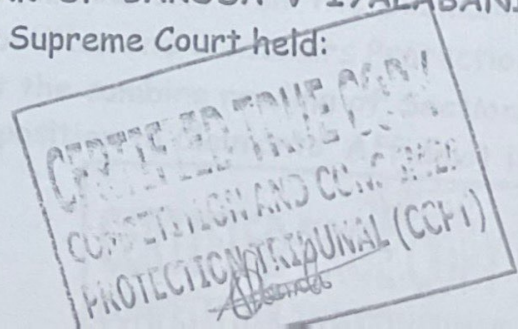 Supreme Court held:
CERTIFIED TRUE COPY
COMPETITION AND CONSUMER
PROTECTION TRIBUNAL (CCPT)